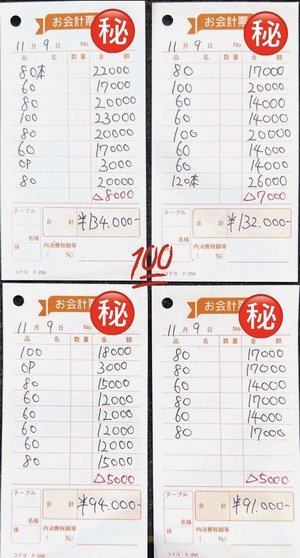 お会計票
秘
11月9日 No.
品名 数量 金額
80本 22000
60 17000
80 20000
100 23000
80 20000
60 17000
OP 3000
80 20000
△8000
テーブル 合計 ¥134000-
係 名様 内消費税額等
( %)
コクヨ テ-250
お会計票
秘
11月9日 No.
品名 数量 金額
80 17000
100 20000
60 14000
60 14000
100 20000
60 14000
60 14000
120本 26000
△7000
テーブル 合計 ¥132000-
係 名様 内消費税額等
( %)
コクヨ テ-250
100
お会計票
秘
11月9日 No.
品名 数量 金額
100 18000
OP 3000
80 15000
60 12000
60 12000
60 12000
60 12000
80 15000
△5000
テーブル 合計 ¥94000-
係 名様 内消費税額等
( %)
コクヨ テ-250
お会計票
秘
11月9日 No.
品名 数量 金額
80 17000
80 17000
60 14000
80 17000
60 14000
80 17000
△5000
テーブル 合計 ¥91000-
係 名様 内消費税額等
( %)
コクヨ テ-250